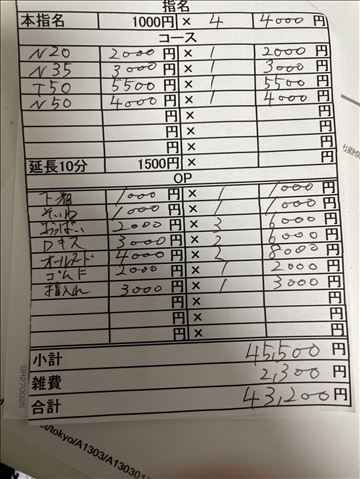 指名
本指名 1000円 × 4 4000円
コース
N20 2000円 × 1 2000円
N35 3000円 × 1 3000円
T50 5500円 × 1 5500円
N50 4000円 × 1 4000円
円 × 円
円 × 円
円 × 円
円 × 円
延長10分 1500円 × 円
OP
下着 1000円 × 1 1000円
そいね 1000円 × 1 1000円
おっぱい 2000円 × 3 6000円
Dキス 3000円 × 2 6000円
オールヌード 4000円 × 2 8000円
ゴムF 2000円 × 1 2000円
指入れ 3000円 × 1 3000円
円 × 円
円 × 円
円 × 円
小計 45,500円
雑費 2,300円
合計 43,200円
GR270026
/tokyo/A1303/A130301/